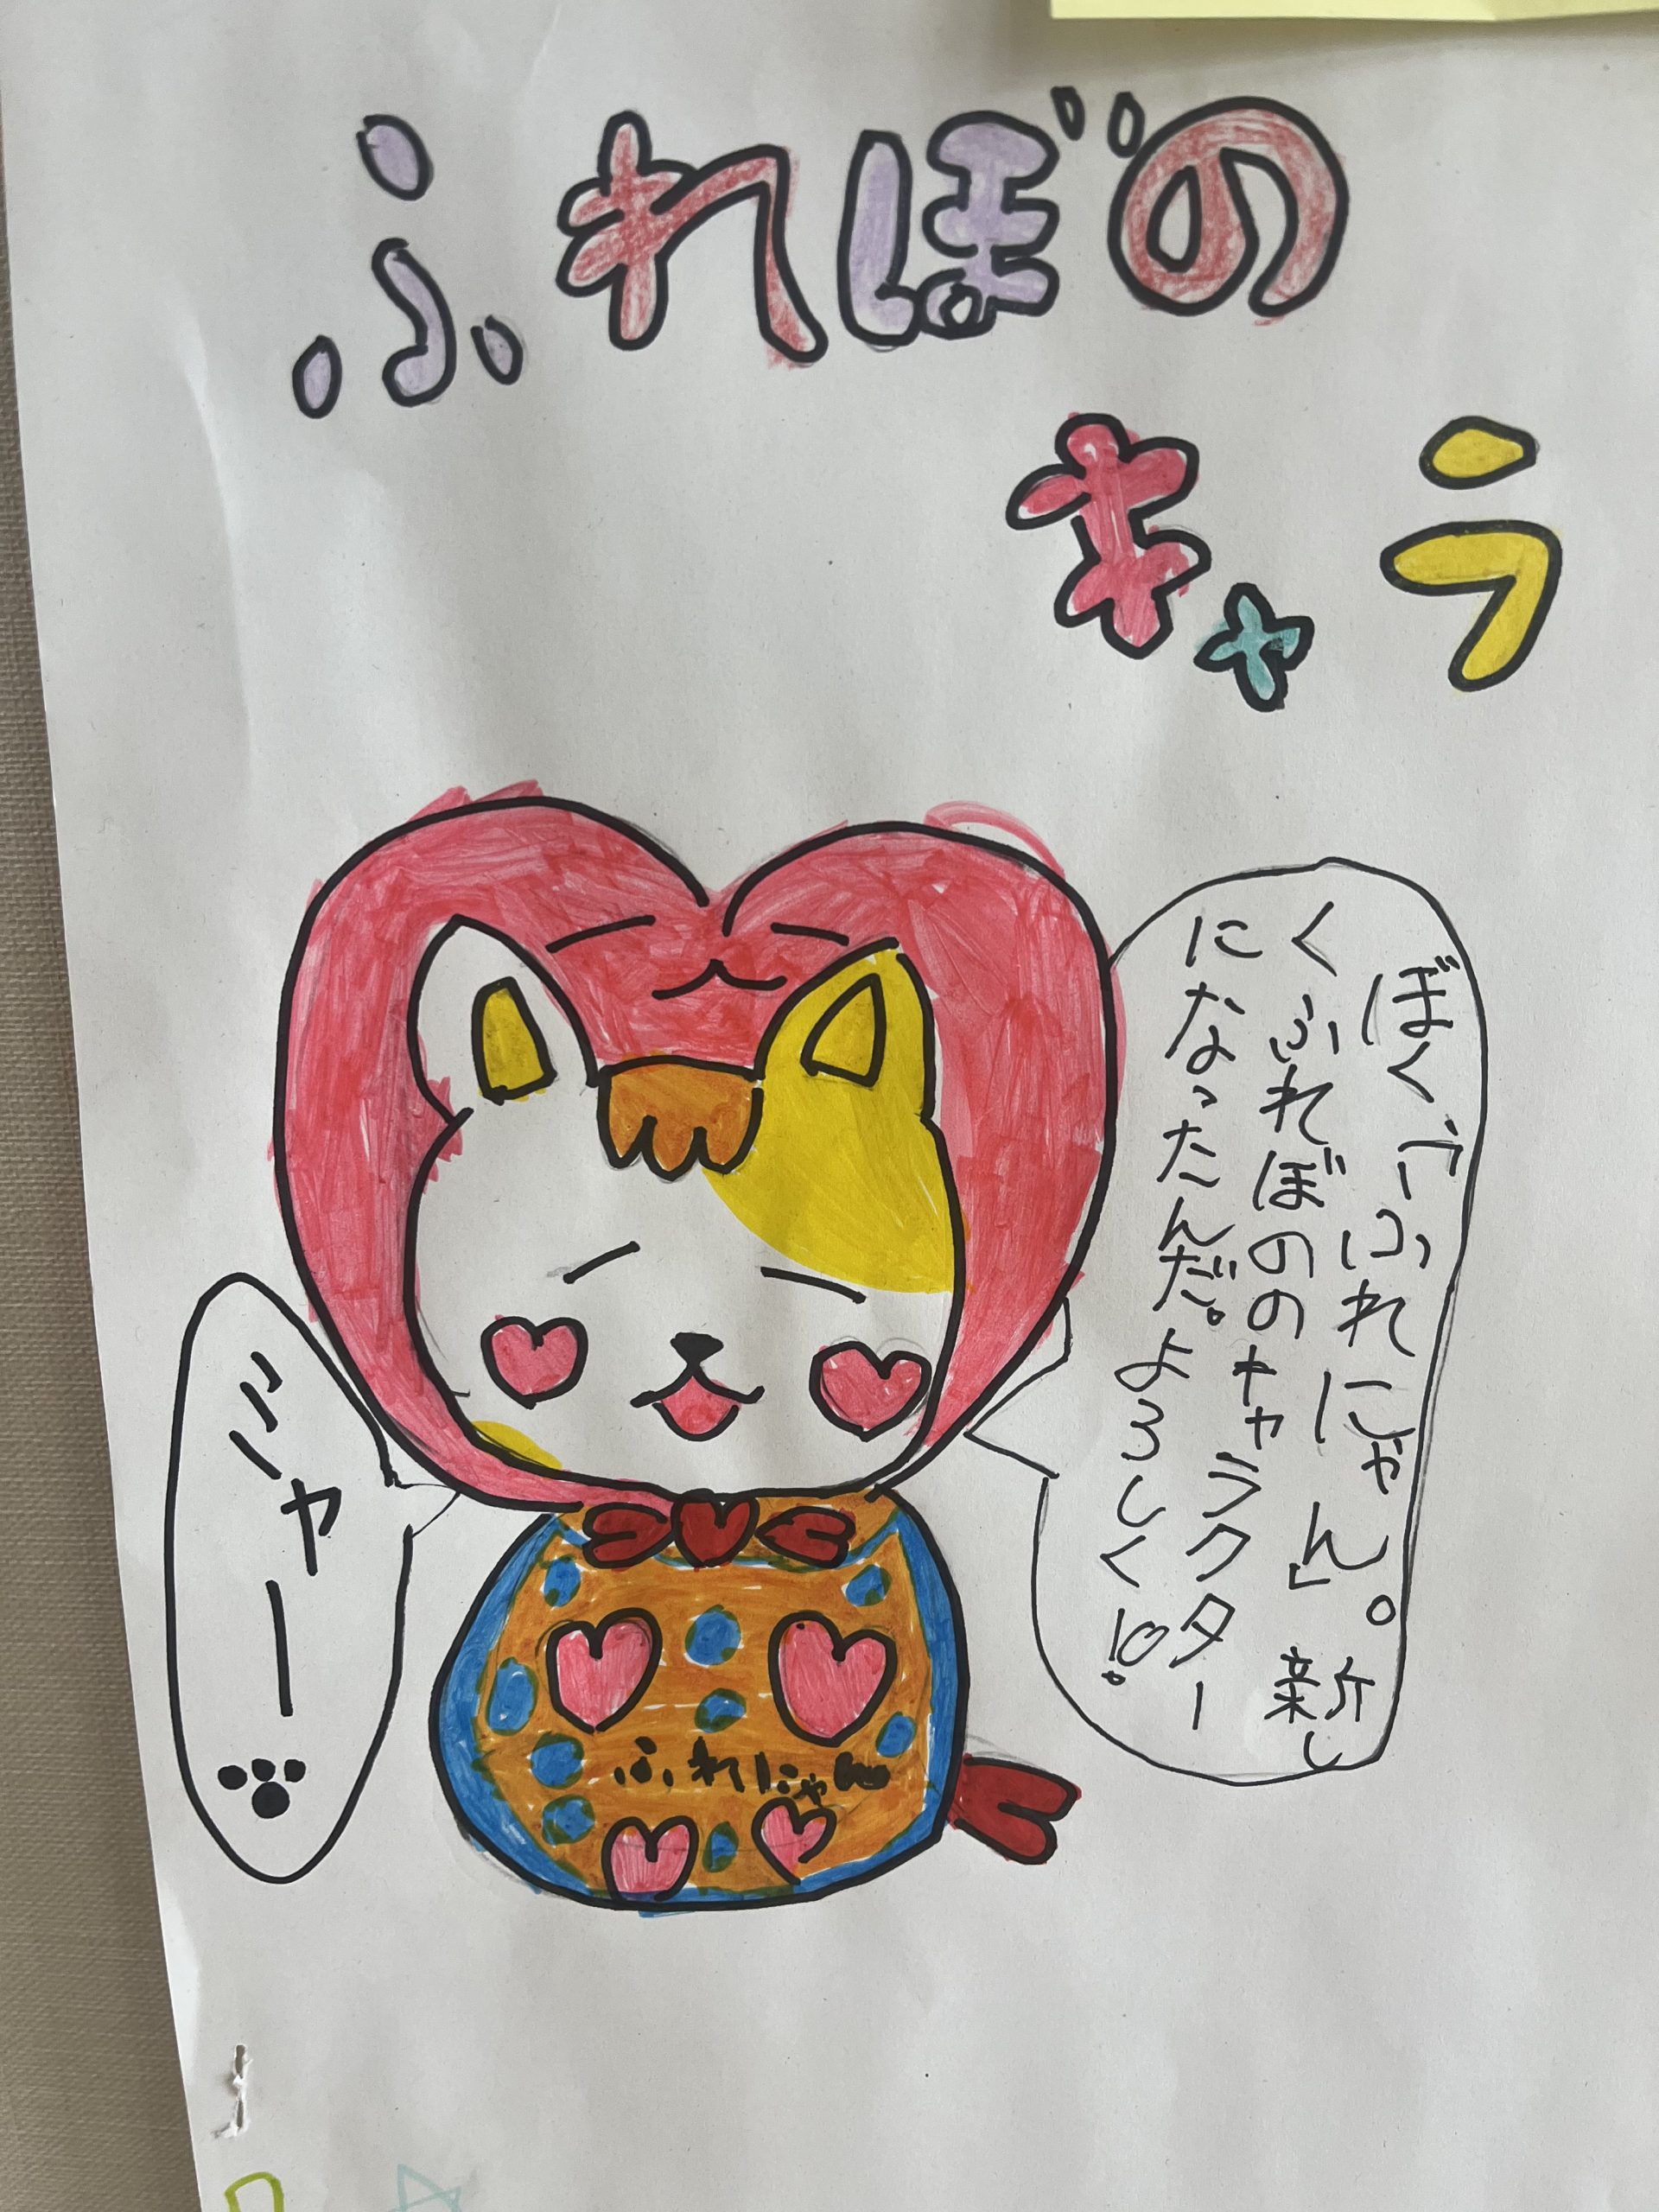 ふれぼの
キャラ
ぼく、「ふれにゃん」。新し
くふれぼののキャラクター
になったんだ。よろしく!!
ミャー
ふれにゃん